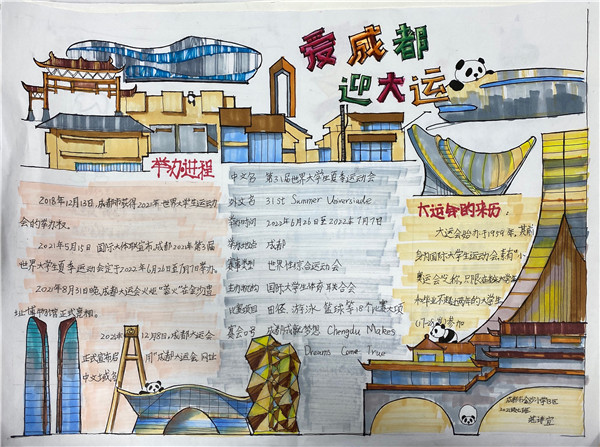 爱成都
迎大运
举办进程
2018年12月13日,成都市获得2021年世界大学生运动
会的举办权。
2021年5月15日 国际大体联宣布,成都2021年第31届
世界大学生夏季运动会定于2022年6月26日至7月7日举办。
2021年8月31日晚,成都大运会火炬“蓉火”在金沙遗
址博物馆正式亮相。
12月8日,成都大运会
正式宣布启用“成都大运会
中文名 第31届世界大学生夏季运动会
外文名 31st Summer Universiade
举办时间 2022年6月26日至2022年7月7日
举办地点 成都
赛事类型 世界性综合运动会
主办机构 国际大学生体育联合会
比赛项目 田径、游泳、篮球等18个大项
赛会口号 成都成就梦想 Chengdu Makes
Dreams Come True
大运会的来历:
大运会始办于1959年,其前
身为国际大学生运动会,素有“小
奥运会”之称,只限在校大学生
和毕业不超过两年的大学生
参加